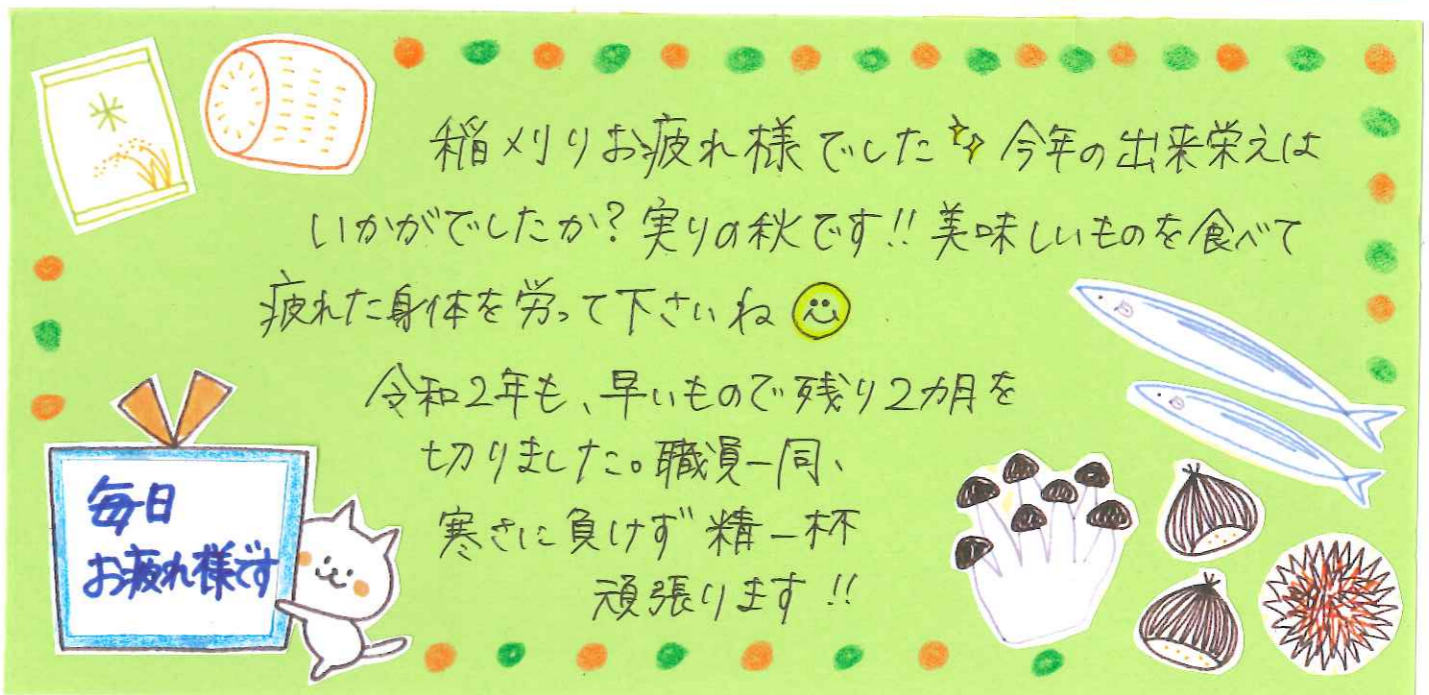 米
稲刈りお疲れ様でした✨今年の出来栄えは
いかがでしたか?実りの秋です!!美味しいものを食べて
疲れた身体を労って下さいね
令和2年も、早いもので残り2カ月を
切りました。職員一同、
寒さに負けず精一杯
頑張ります!!
毎日
お疲れ様です